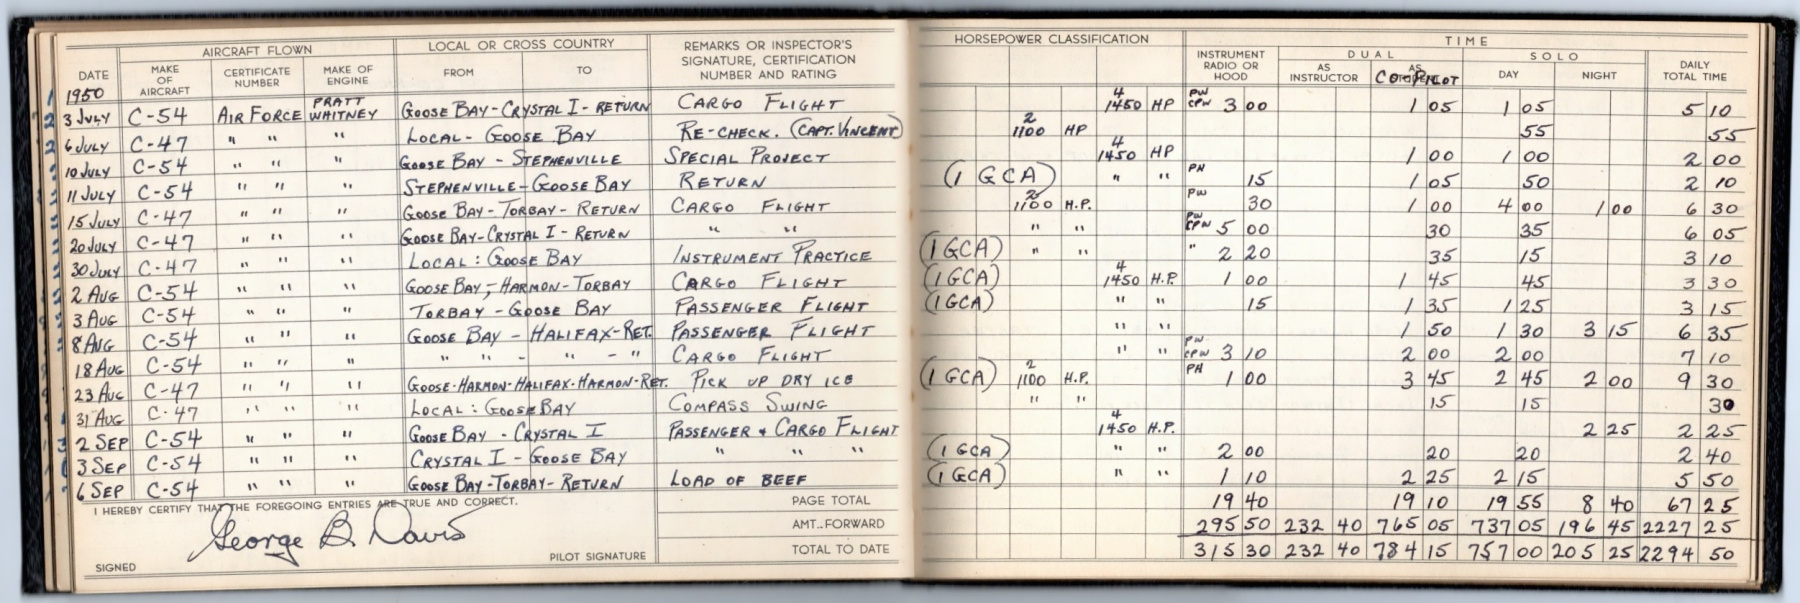 AIRCRAFT FLOWN LOCAL OR CROSS COUNTRY REMARKS OR INSPECTOR'S SIGNATURE, CERTIFICATION NUMBER AND RATING HORSEPOWER CLASSIFICATION TIME
DATE MAKE OF AIRCRAFT CERTIFICATE NUMBER MAKE OF ENGINE FROM TO INSTRUMENT RADIO OR HOOD DUAL SOLO DAILY TOTAL TIME
1950 AS INSTRUCTOR AS CO-PILOT DAY NIGHT
3 JULY C-54 AIR FORCE PRATT WHITNEY GOOSE BAY-CRYSTAL I-RETURN CARGO FLIGHT 4 1450 HP PW CPW 3 00 1 05 1 05 5 10
6 JULY C-47 " " " LOCAL-GOOSE BAY RE-CHECK. (CAPT. VINCENT) 2 1100 HP 55 55
10 JULY C-54 " " " GOOSE BAY - STEPHENVILLE SPECIAL PROJECT 4 1450 HP 1 00 1 00 2 00
11 JULY C-54 " " " STEPHENVILLE-GOOSE BAY RETURN (1 GCA) " " 15 1 05 50 2 10
15 JULY C-47 " " " GOOSE BAY-TORBAY-RETURN CARGO FLIGHT 2 1100 H.P. PW 30 1 00 4 00 1 00 6 30
20 JULY C-47 " " " GOOSE BAY-CRYSTAL I-RETURN " " " " PW CPW 5 00 30 35 6 05
30 JULY C-47 " " " LOCAL: GOOSE BAY INSTRUMENT PRACTICE (1 GCA) " " " 2 20 35 15 3 10
2 AUG C-54 " " " GOOSE BAY-HARMON-TORBAY CARGO FLIGHT (1 GCA) 4 1450 H.P. 1 00 1 45 45 3 30
3 AUG C-54 " " " TORBAY - GOOSE BAY PASSENGER FLIGHT (1 GCA) " " 15 1 35 1 25 3 15
8 AUG C-54 " " " GOOSE BAY - HALIFAX-RET. PASSENGER FLIGHT " " 1 50 1 30 3 15 6 35
18 AUG C-54 " " " " " - " - " CARGO FLIGHT " " PW CPW 3 10 2 00 2 00 7 10
23 AUG C-47 " " " GOOSE-HARMON-HALIFAX-HARMON-RET. PICK UP DRY ICE (1 GCA) 2 1100 H.P. 1 00 3 45 2 45 2 00 9 30
31 AUG C-47 " " " LOCAL: GOOSE BAY COMPASS SWING " " 15 15 30
2 SEP C-54 " " " GOOSE BAY - CRYSTAL I PASSENGER + CARGO FLIGHT 4 1450 H.P. 2 25 2 25
3 SEP C-54 " " " CRYSTAL I - GOOSE BAY " " " (1 GCA) " " 2 00 20 20 2 40
6 SEP C-54 " " " GOOSE BAY-TORBAY-RETURN LOAD OF BEEF (1 GCA) " " 1 10 2 25 2 15 5 50
I HEREBY CERTIFY THAT THE FOREGOING ENTRIES ARE TRUE AND CORRECT. PAGE TOTAL 19 40 19 10 19 55 8 40 67 25
George B. Davis AMT. FORWARD 295 50 232 40 765 05 737 05 196 45 2227 25
SIGNED PILOT SIGNATURE TOTAL TO DATE 315 30 232 40 784 15 757 00 205 25 2294 50